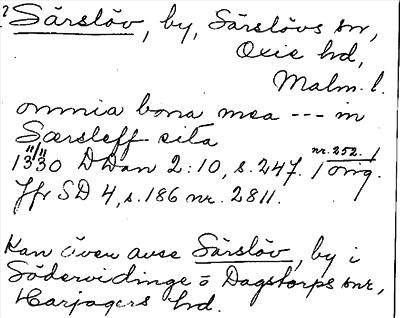 ? Särslöv, by, Särslövs sn,
Oxie hd,
Malm. l.
omnia bona mea --- in
Særsleff sita
13 11/11 30 D Dan 2:10, s. 247. nr. 252. / orig.
Jfr SD 4, s. 186 nr. 2811.
Kan även avse Särslöv, by i
Södervidinge o Dagstorps snr,
Harjagers hd.